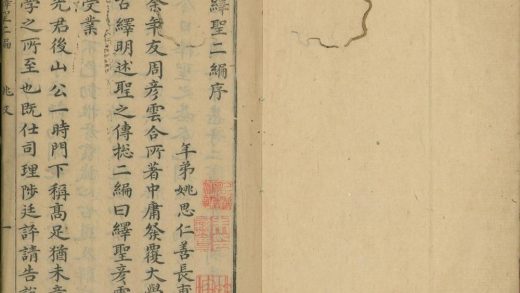 繹聖二編序
年弟姚思仁善長
余年友周彥雲合所著中庸發覆大學
古繹明述聖之傳摠二編曰繹聖彥雲
受業
先君後山公一時門下稱高足猶未竟
學之所至也既仕司理陟廷評請告
聖二編
一